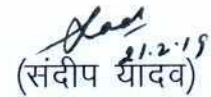 21.2.19
(संदीप यादव)